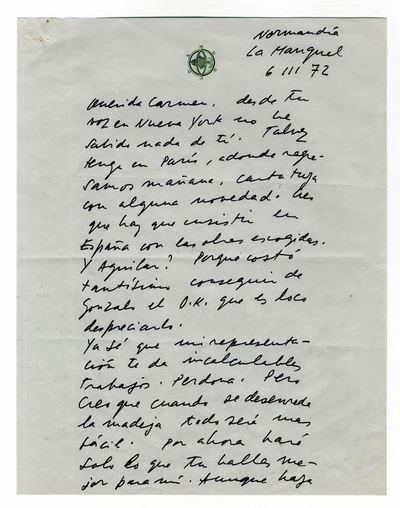 Normandía
La Manquel
6 III 72
Querida Carmen, desde tu
voz en Nueva York no he
sabido nada de tí. Talvez
tenga en París, adonde regre-
samos mañana, carta tuya
con alguna novedad. Creo
que hay que insistir en
España con las obras escogidas.
Y Aguilar? Porque costó
tantísimo conseguir de
Gonzalo el O.K. que es loco
despreciarlo.
Ya sé que mi representa-
ción te da incalculables
trabajos. Perdona. Pero
creo que cuando se desenrede
la madeja todo será mas
fácil. Por ahora haré
solo lo que tu halles me-
jor para mí. Aunque haya